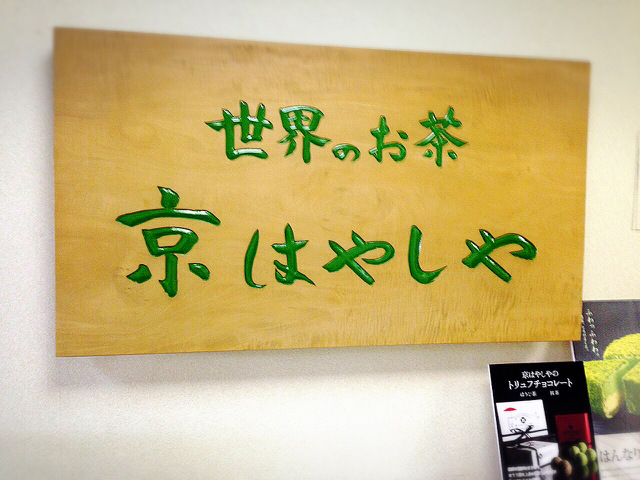 世界のお茶
京はやしや
京はやしやの
トリュフチョコレート
ほうじ茶 抹茶
はんなり